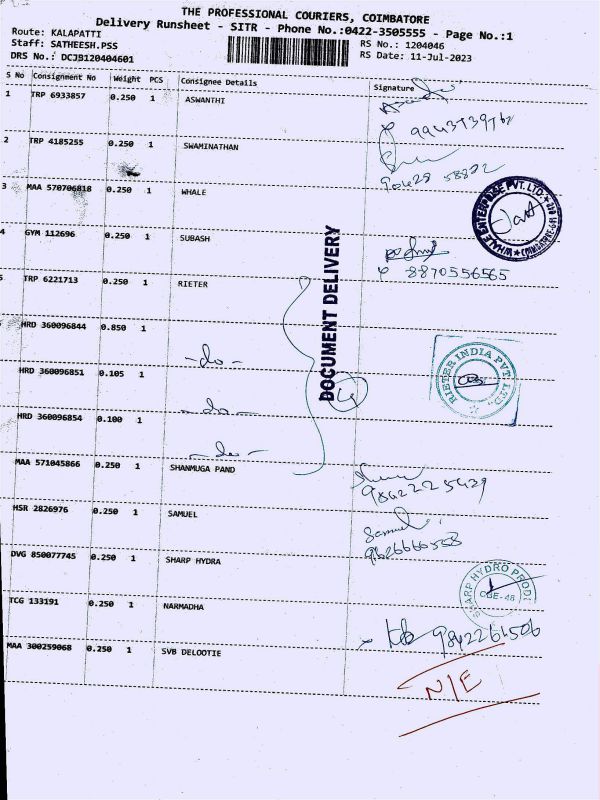 THE PROFESSIONAL COURIERS, COIMBATORE
Delivery Runsheet - SITR - Phone No.:0422-3505555 - Page No.:1
Route: KALAPATTI
Staff: SATHEESH.PSS
DRS No.: DCJB120404601
RS No.: 1204046
RS Date: 11-Jul-2023
S No Consignment No Weight PCS Consignee Details Signature
1 TRP 6933857 0.250 1 ASWANTHI
2 TRP 4185255 0.250 1 SWAMINATHAN
3 MAA 570706818 0.250 1 WHALE
WHALE ENTERPRISE PVT. LTD.
4 GYM 112696 0.250 1 SUBASH 8870556565
5 TRP 6221713 0.250 1 RIETER
DOCUMENT DELIVERY
4
HRD 360096844 0.850 1 -do-
HRD 360096851 0.105 1 -do-
HRD 360096854 0.100 1 -do-
RIETER INDIA PVT. LTD.
MAA 571045866 0.250 1 SHANMUGA PAND 9842225429
HSR 2826976 0.250 1 SAMUEL Samuel
DVG 850077745 0.250 1 SHARP HYDRA
SHARP HYDRO PROD
CBE-48
TCG 133191 0.250 1 NARMADHA 9842261506
MAA 300259068 0.250 1 SVB DELOOTIE N/E